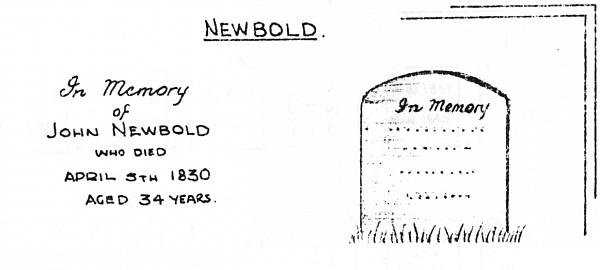 NEWBOLD.
In Memory
of
JOHN NEWBOLD
WHO DIED
APRIL 5TH 1830
AGED 34 YEARS.
In Memory